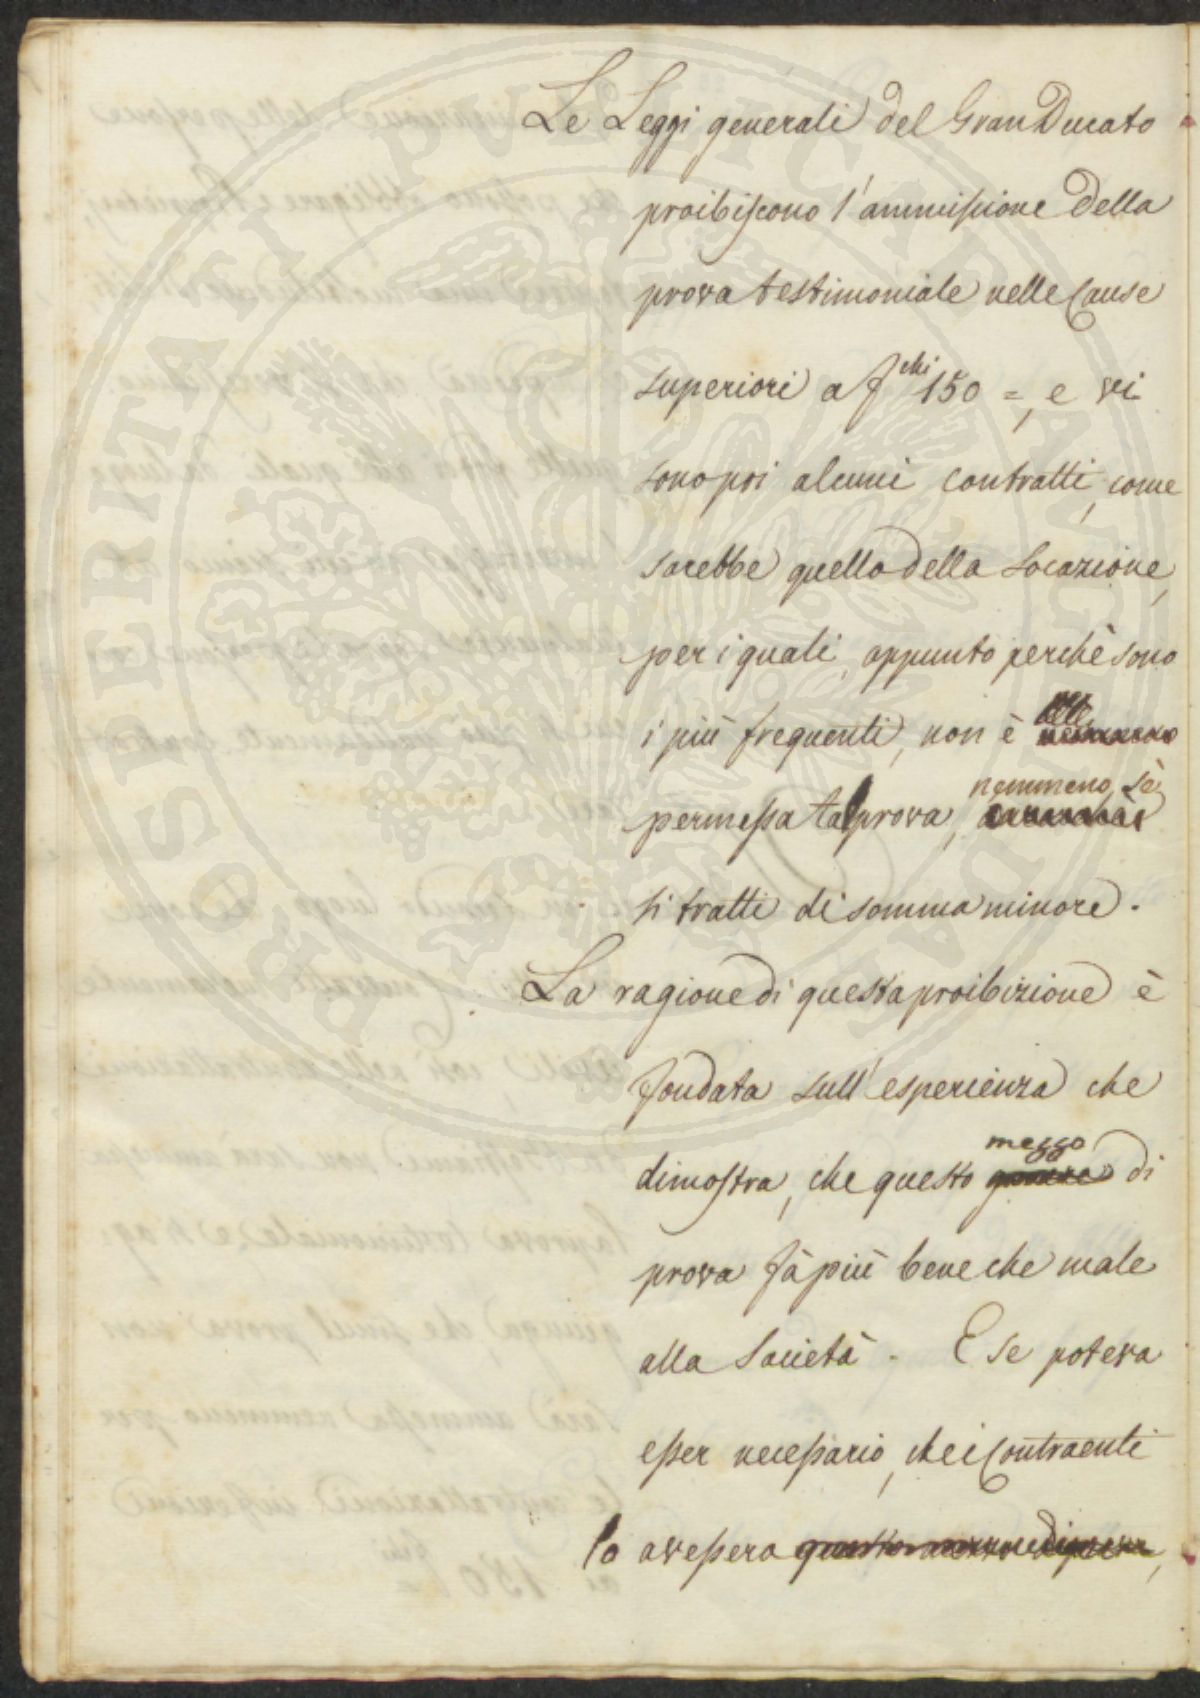 Le Leggi generali del GranDucato
proibiscono l'ammissione della
prova testimoniale nelle Cause
superiori a f.chi 150 =, e vi
sono poi alcuni contratti, come
sarebbe quello della Locazione,
per i quali, appunto perchè sono
i più frequenti, non è
permessa tal prova, nemmeno sè
si tratti di somma minore.
La ragione di questa proibizione è
fondata sull'esperienza che
dimostra, che questo mezzo di
prova fà più bene che male
alla Società. E se poteva
esser necessario, che i Contraenti
lo avessero
PROSPERITATI PVBLICAE AVGENDAE